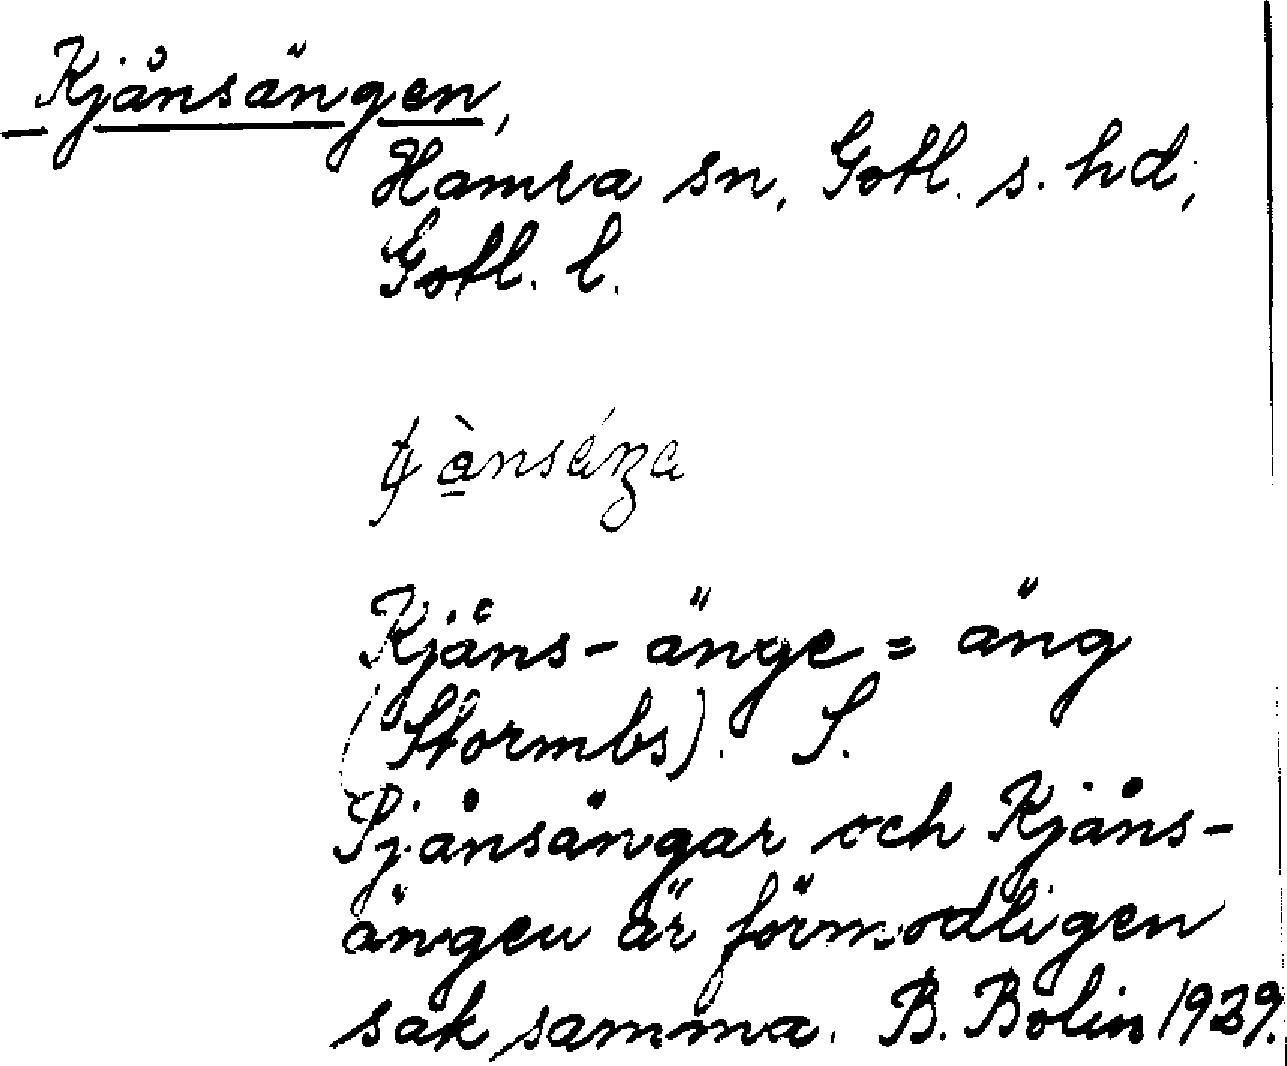 Kjånsängen,
Hamra sn, Gotl. s. hd,
Gotl. l.
Kjåns- änge = äng
(Stormbs). S.
Tjånsängar och Kjåns-
ängen är förmodligen
sak samma. B. Bolin 1939.